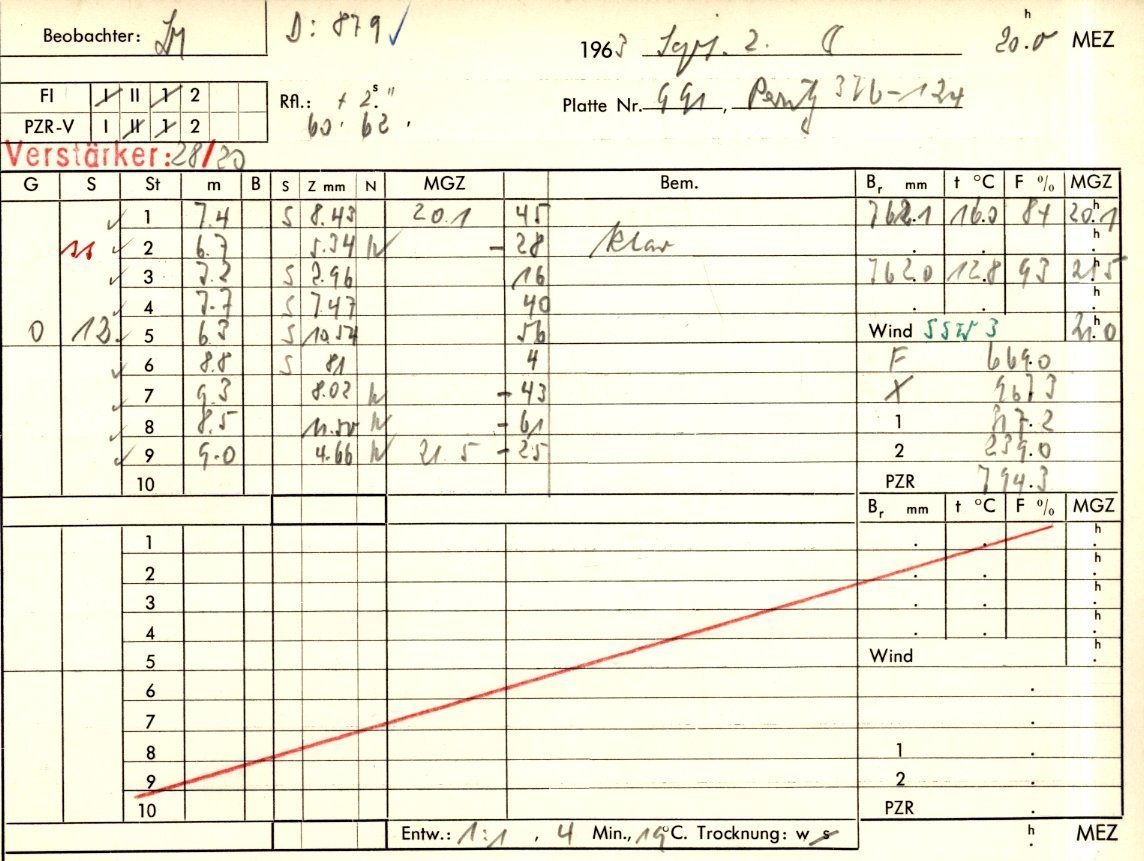 Beobachter:
D: 879
1963 Sept. 2. 20.0 h MEZ
FI I II 1 2
PZR-V I II 1 2
Rfl.: + 2 s "
60. 62.
Platte Nr. 991,
Verstärker: 28/20
G S St m B S Z mm N MGZ Bem. Br mm t °C F % MGZ
1 7.4 S 8.43 20.1 45 16.0 84 20.1 h
2 6.7 5.34 N - 28 klar . . h
3 7.2 S 2.96 16 762.0 12.8 93 21.5 h
4 7.7 S 7.47 40 . . h
0 12. 5 6.3 S 10.54 56 Wind SSW 3 21.0 h
6 8.8 S 81 4 F 669.0
7 9.3 8.02 N - 43 X
8 8.5 N - 61 1 817.2
9 9.0 4.66 N 21.5 - 25 2 239.0
10 PZR 794.3
Br mm t °C F % MGZ
1 . . h
2 . . h
3 . . h
4 . . h
5 Wind h
6 .
7 .
8 1 .
9 2 .
10 PZR .
Entw.: 1:1, 4 Min., 19°C. Trocknung: w s h MEZ